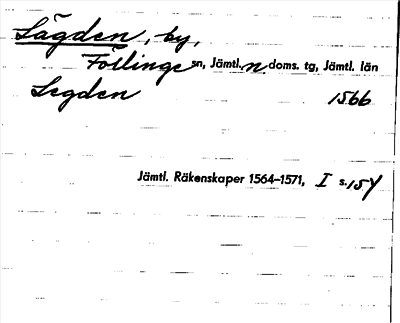 Lägden, by,
Föllinge sn, Jämtl. n. doms. tg, Jämtl. län
Legden 1566
Jämtl. Räkenskaper 1564–1571, I s. 154